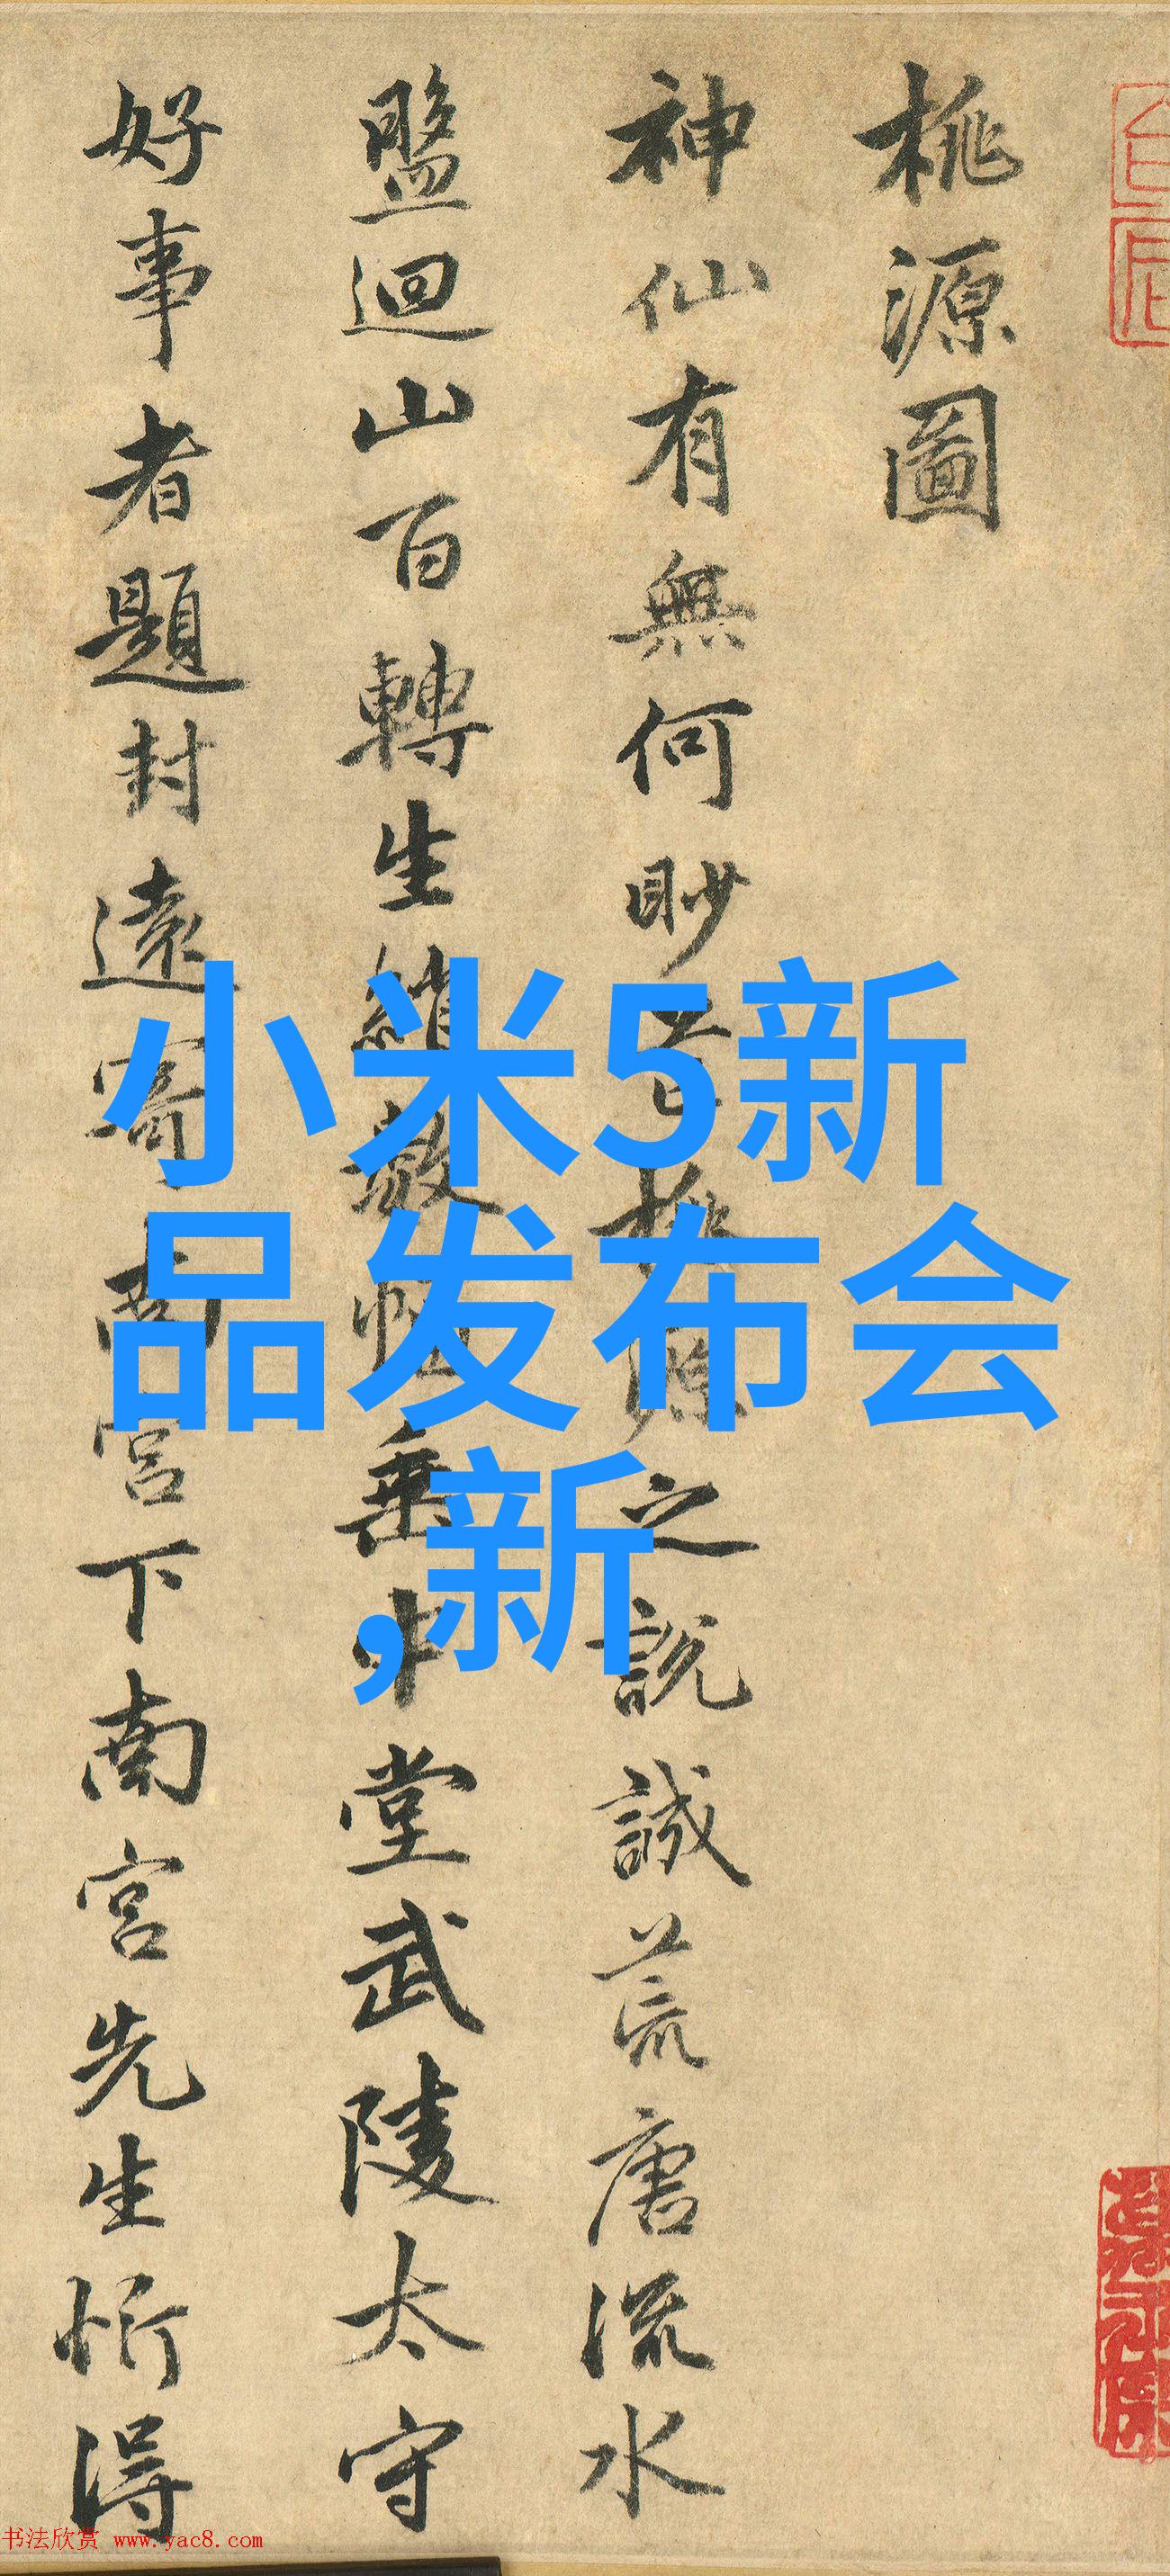 桃源圖
神仙有無何眇芒桃源之說誠荒唐流水
盤迴山百轉生綃數幅垂中堂武陵太守
好事者題封遠寄南宮下南宮先生忻得
小米5新
品发布会
,新
书法欣赏 www.yac8.com